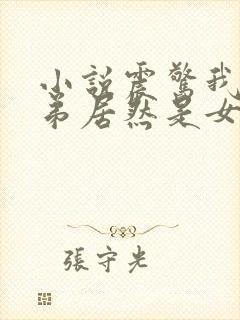 小說震驚我
弟居然是女
張守光